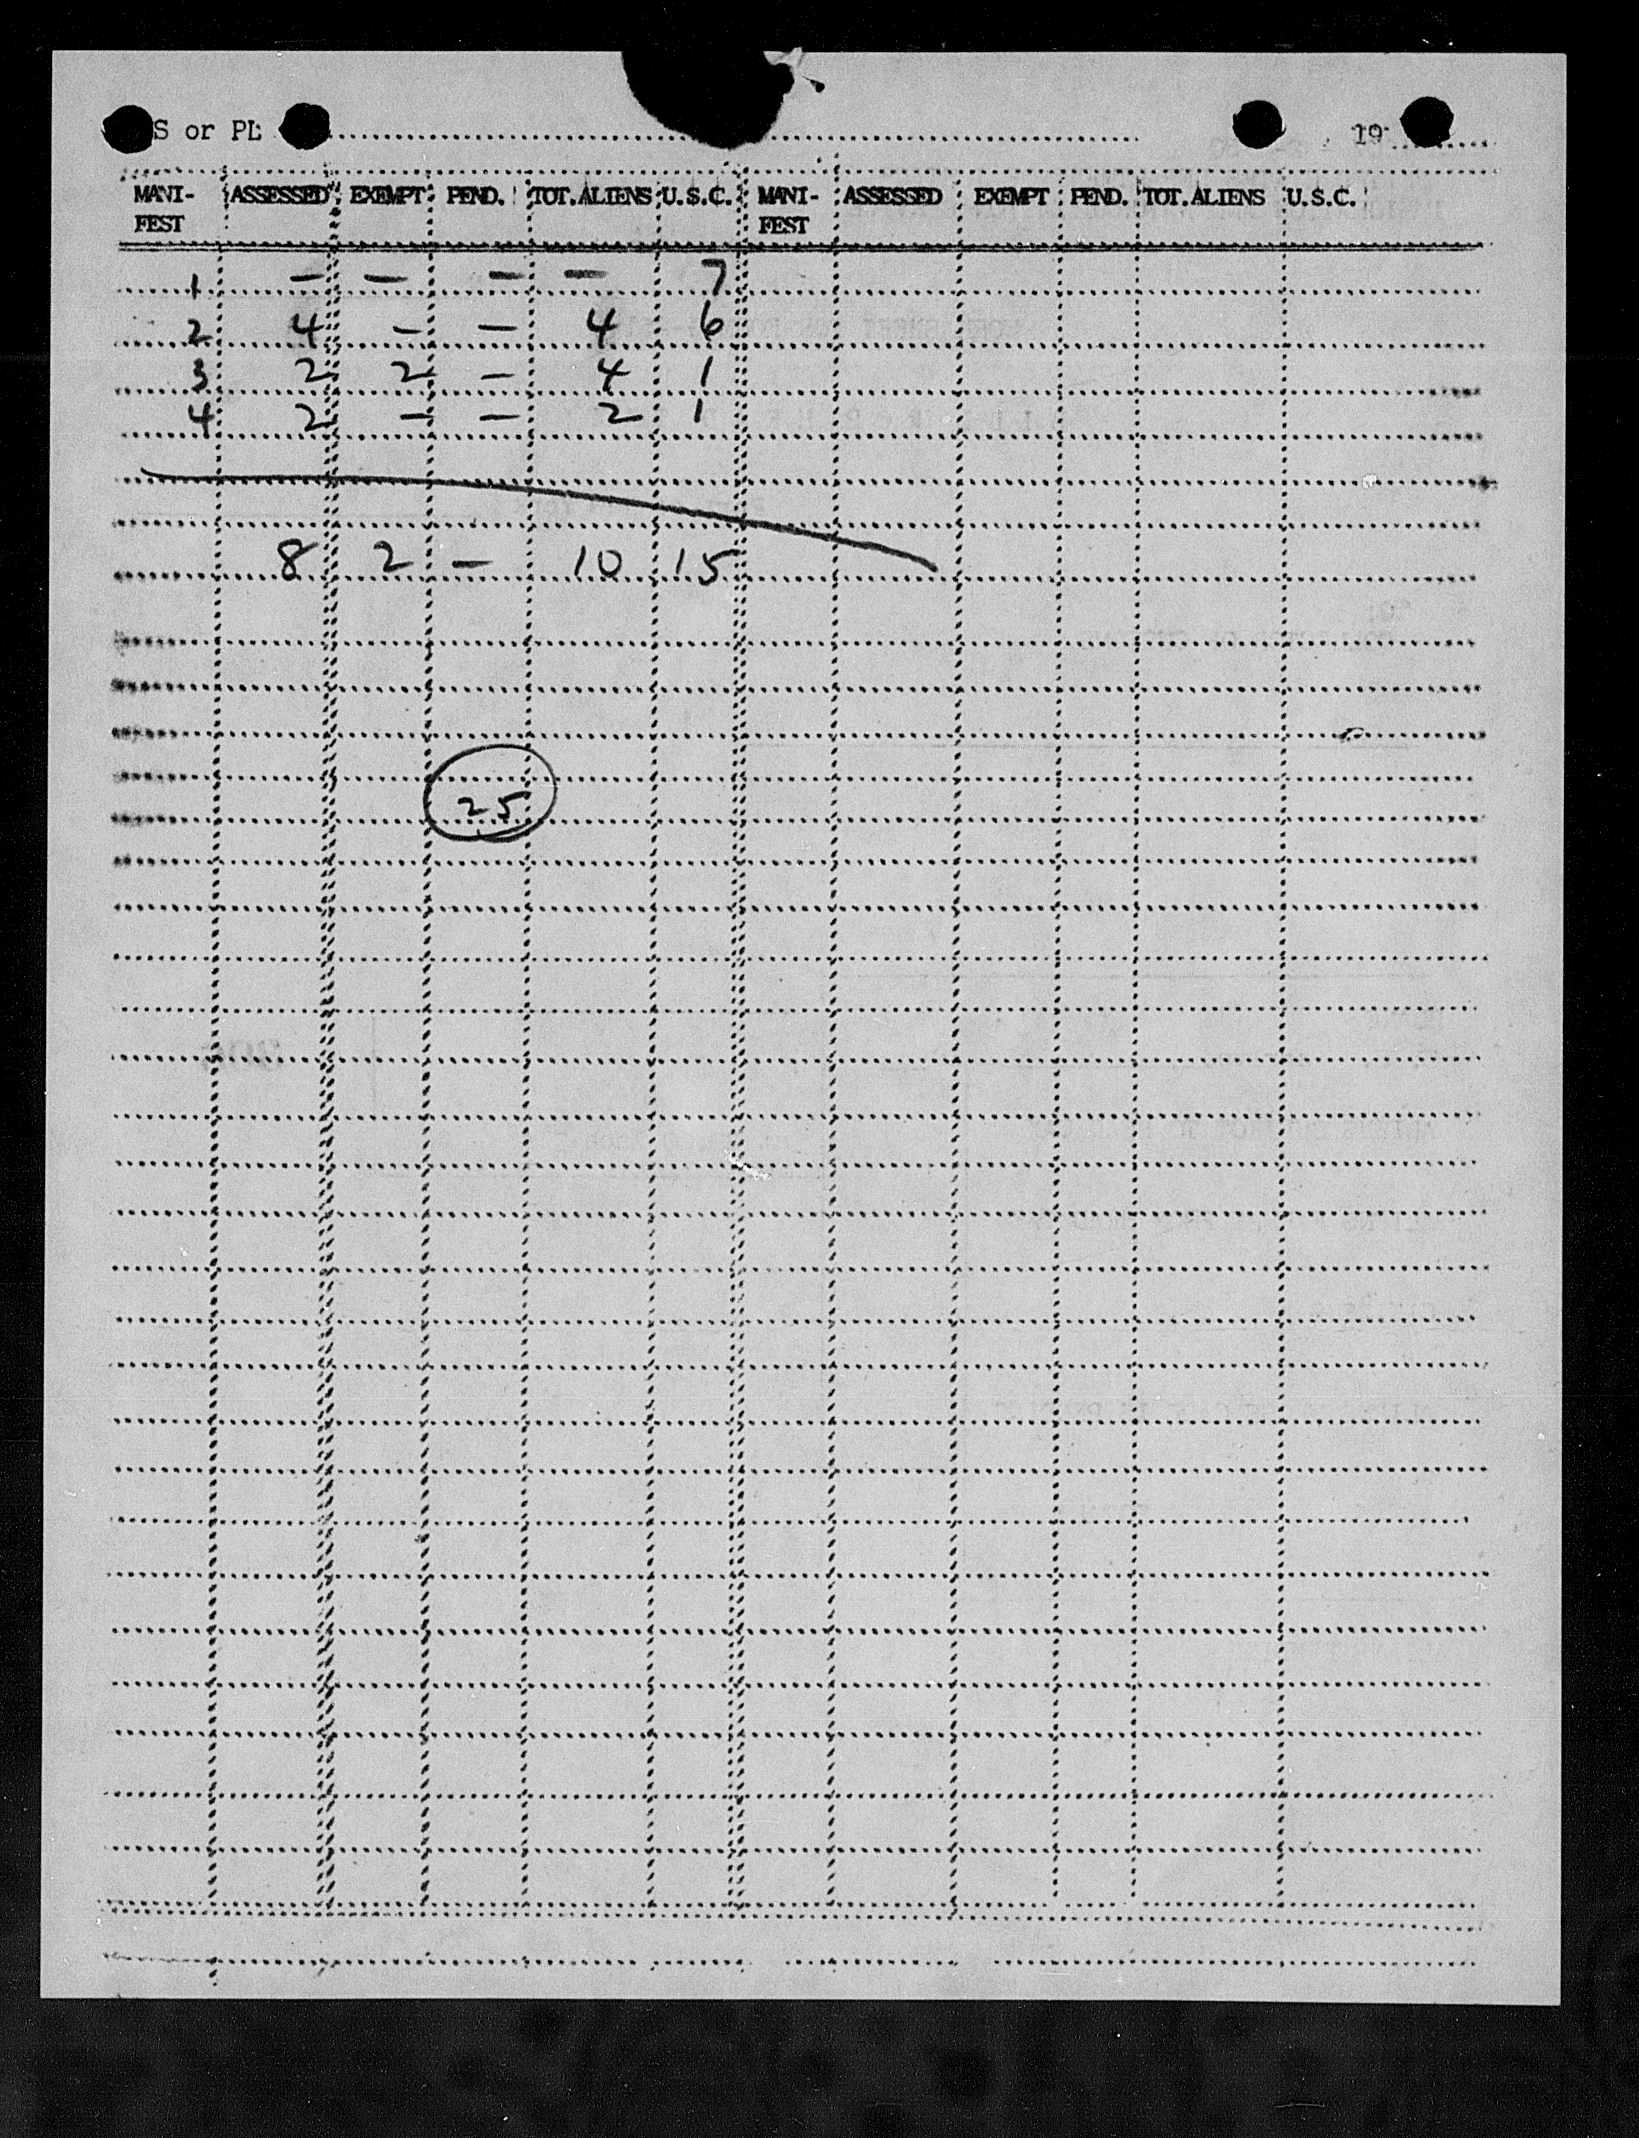 S or PL 19
MANI- ASSESSED EXEMPT PEND. TOT. ALIENS U.S.C. MANI- ASSESSED EXEMPT PEND. TOT. ALIENS U.S.C.
FEST FEST
1 — — — — 7
2 4 — — 4 6
3 2 2 — 4 1
4 2 — — 2 1
8 2 — 10 15
25